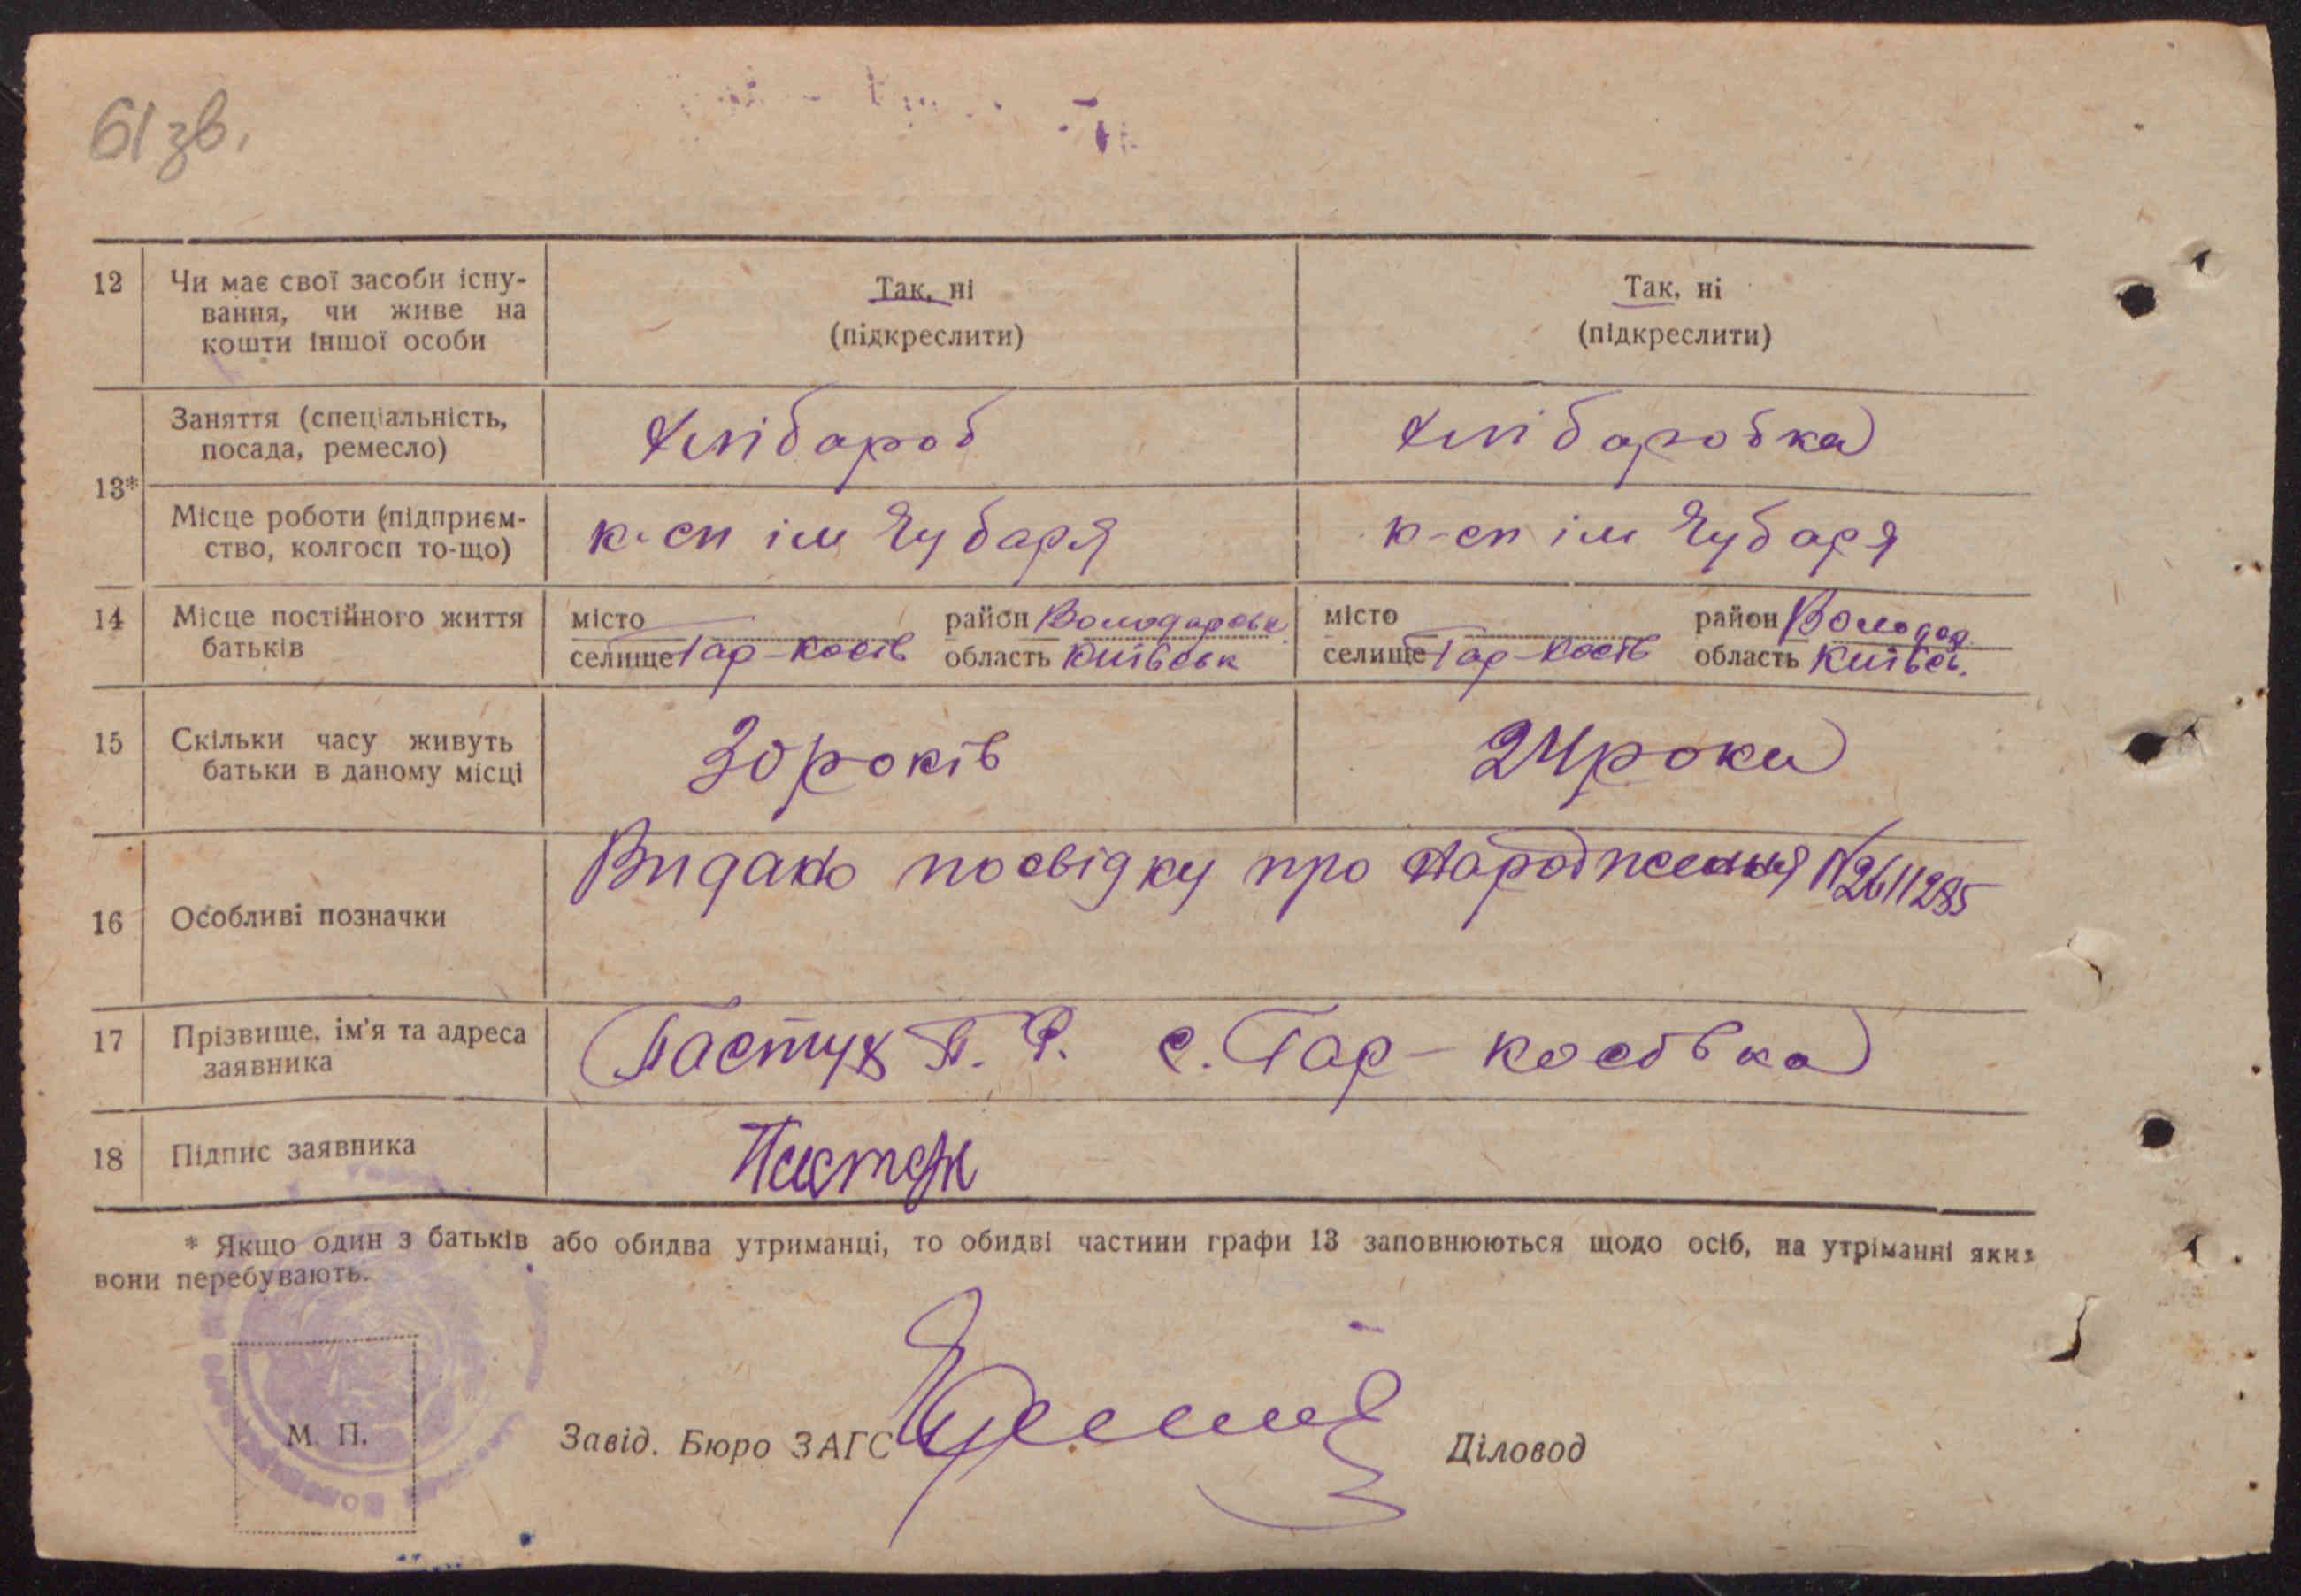 61 зв.
12 Чи має свої засоби існу-
вання, чи живе на
кошти іншої особи
Так, ні
(підкреслити)
Так, ні
(підкреслити)
13*
Заняття (спеціальність,
посада, ремесло)
хлібароб
хлібаробка
Місце роботи (підприєм-
ство, колгосп то-що)
к-сп ім Чубаря
к-сп ім Чубаря
14 Місце постійного життя
батьків
місто район Володарськ
селище Гар-Косів область Київськ
місто район Володар.
селище Гар-Косів область Київсь.
15 Скільки часу живуть
батьки в даному місці
30 років
24 роки
16 Особливі позначки
Видано посвідку про народження N 2611285
17 Прізвище, ім'я та адреса
заявника
Пастух П. Ф. с. Гар-Косівка
18 Підпис заявника
* Якщо один з батьків або обидва утриманці, то обидві частини графи 13 заповнюються щодо осіб, на утріманні яких
вони перебувають.
М. П.
Завід. Бюро ЗАГС
Діловод